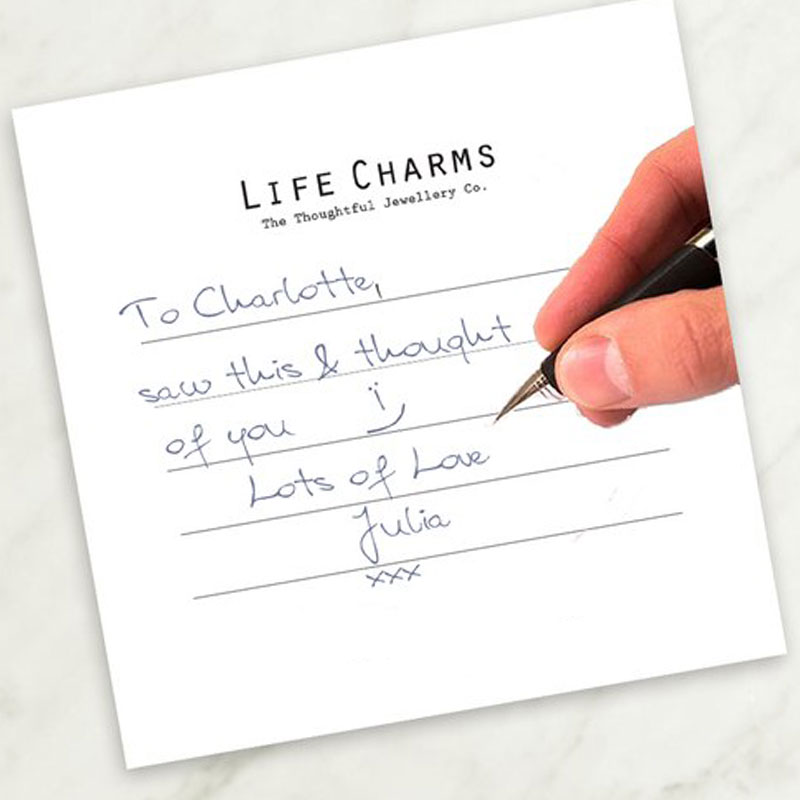 LIFE CHARMS
The Thoughtful Jewellery Co.
To Charlotte,
saw this & thought
of you
Lots of Love
Julia
xxx